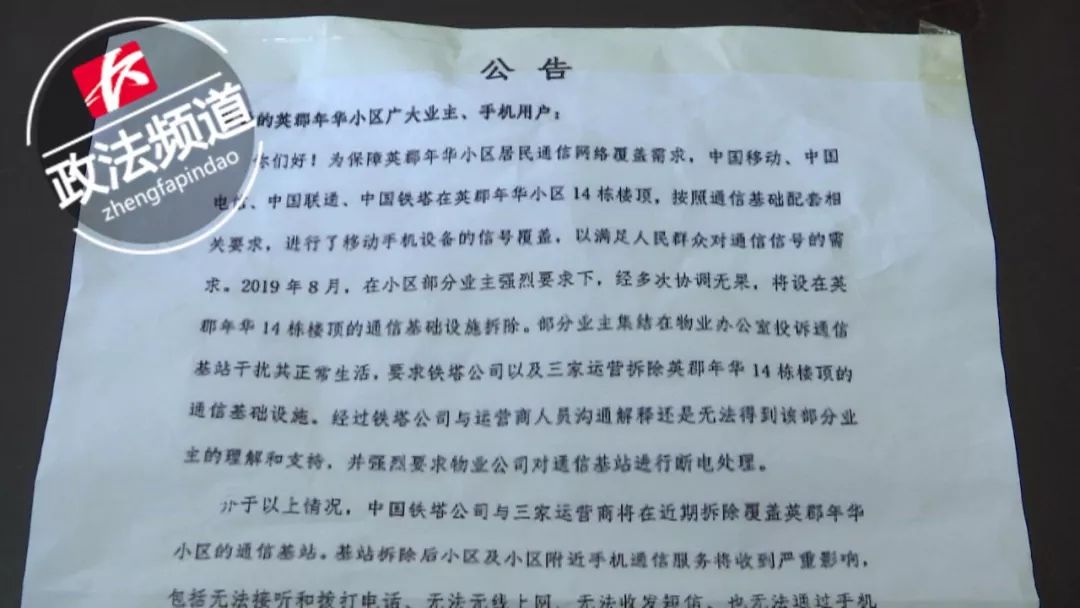 公告
的英郡年华小区广大业主、手机用户：
你们好！为保障英郡年华小区居民通信网络覆盖需求，中国移动、中国
电信、中国联通、中国铁塔在英郡年华小区14栋楼顶，按照通信基础配套相
关要求，进行了移动手机设备的信号覆盖，以满足人民群众对通信信号的需
求。2019年8月，在小区部分业主强烈要求下，经多次协调无果，将设在英
郡年华14栋楼顶的通信基础设施拆除。部分业主集结在物业办公室投诉通信
基站干扰其正常生活，要求铁塔公司以及三家运营拆除英郡年华14栋楼顶的
通信基础设施。经过铁塔公司与运营商人员沟通解释还是无法得到该部分业
主的理解和支持，并强烈要求物业公司对通信基站进行断电处理。
介于以上情况，中国铁塔公司与三家运营商将在近期拆除覆盖英郡年华
小区的通信基站。基站拆除后小区及小区附近手机通信服务将收到严重影响，
包括无法接听和拨打电话、无法无线上网、无法收发短信、也无法通过手机
政法频道
zhengfapindao